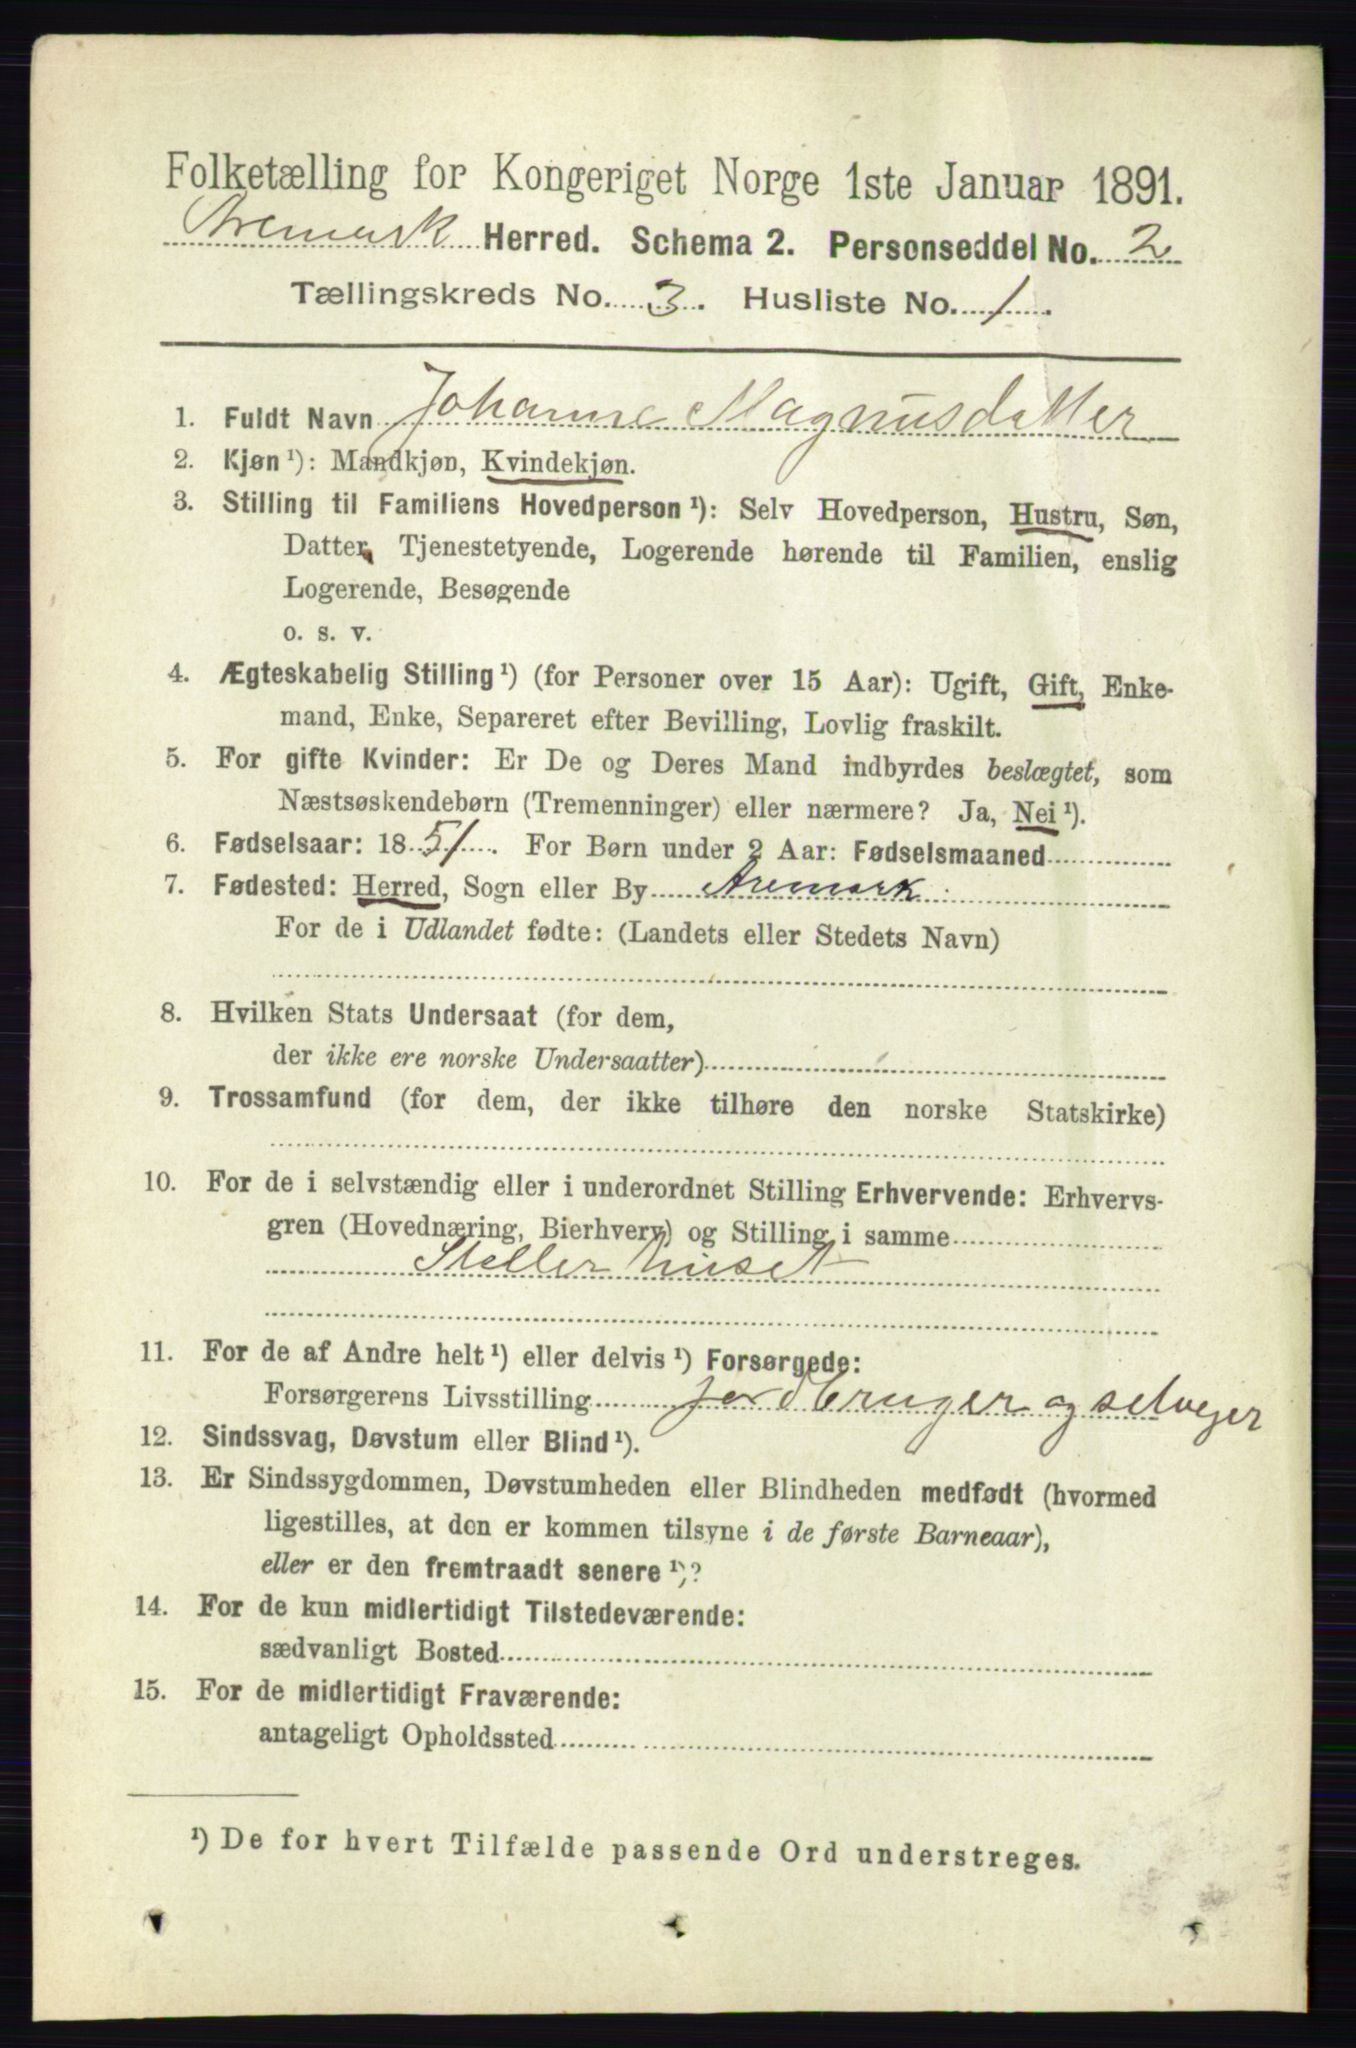 Folketælling for Kongeriget Norge 1ste Januar 1891.
Aremark Herred. Schema 2. Personseddel No. 2
Tællingskreds No. 3. Husliste No. 1.
1. Fuldt Navn Johanne Magnusdatter
2. Kjøn ¹): Mandkjøn, Kvindekjøn.
3. Stilling til Familiens Hovedperson ¹): Selv Hovedperson, Hustru, Søn,
Datter, Tjenestetyende, Logerende hørende til Familien, enslig
Logerende, Besøgende
o. s. v.
4. Ægteskabelig Stilling ¹) (for Personer over 15 Aar): Ugift, Gift, Enke-
mand, Enke, Separeret efter Bevilling, Lovlig fraskilt.
5. For gifte Kvinder: Er De og Deres Mand indbyrdes beslægtet, som
Næstsøskendebørn (Tremenninger) eller nærmere? Ja, Nei ¹).
6. Fødselsaar: 1851. For Børn under 2 Aar: Fødselsmaaned
7. Fødested: Herred, Sogn eller By Aremark
For de i Udlandet fødte: (Landets eller Stedets Navn)
8. Hvilken Stats Undersaat (for dem,
der ikke ere norske Undersaatter)
9. Trossamfund (for dem, der ikke tilhøre den norske Statskirke)
10. For de i selvstændig eller i underordnet Stilling Erhvervende: Erhvervs-
gren (Hovednæring, Bierhverv) og Stilling i samme
Steller huset
11. For de af Andre helt ¹) eller delvis ¹) Forsørgede:
Forsørgerens Livsstilling Jordbruger og selveier
12. Sindssvag, Døvstum eller Blind ¹).
13. Er Sindssygdommen, Døvstumheden eller Blindheden medfødt (hvormed
ligestilles, at den er kommen tilsyne i de første Barneaar),
eller er den fremtraadt senere ¹)?
14. For de kun midlertidigt Tilstedeværende:
sædvanligt Bosted
15. For de midlertidigt Fraværende:
antageligt Opholdssted
¹) De for hvert Tilfælde passende Ord understreges.